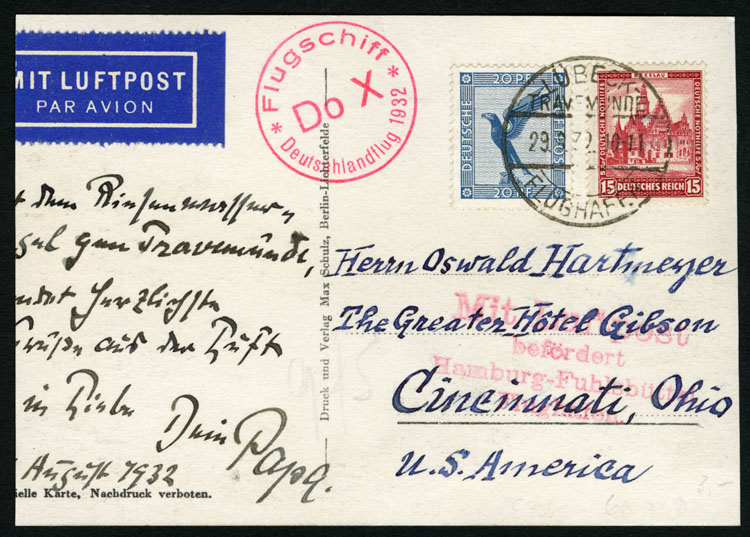 MIT LUFTPOST
PAR AVION
* Flugschiff *
Do X
Deutschlandflug 1932
20 PF.
DEUTSCHE
20 PF.
BRESLAU
DEUTSCHE NOTHILFE
15 DEUTSCHES REICH 15
LÜBECK-
TRAVEMÜNDE
FLUGHAFEN
dem Riesenwasser-
gen Travemünde,
herzlichste
aus der Luft
in Liebe
Dein Papa.
August 1932
ielle Karte, Nachdruck verboten.
Druck und Verlag Max Schulz, Berlin-Lichterfelde
Herrn Oswald Hartmeyer
The Greater Hotel Gibson
Cincinnati, Ohio
U.S. America
Mit Luftpost
befördert
Hamburg-Fuhlsbüttel